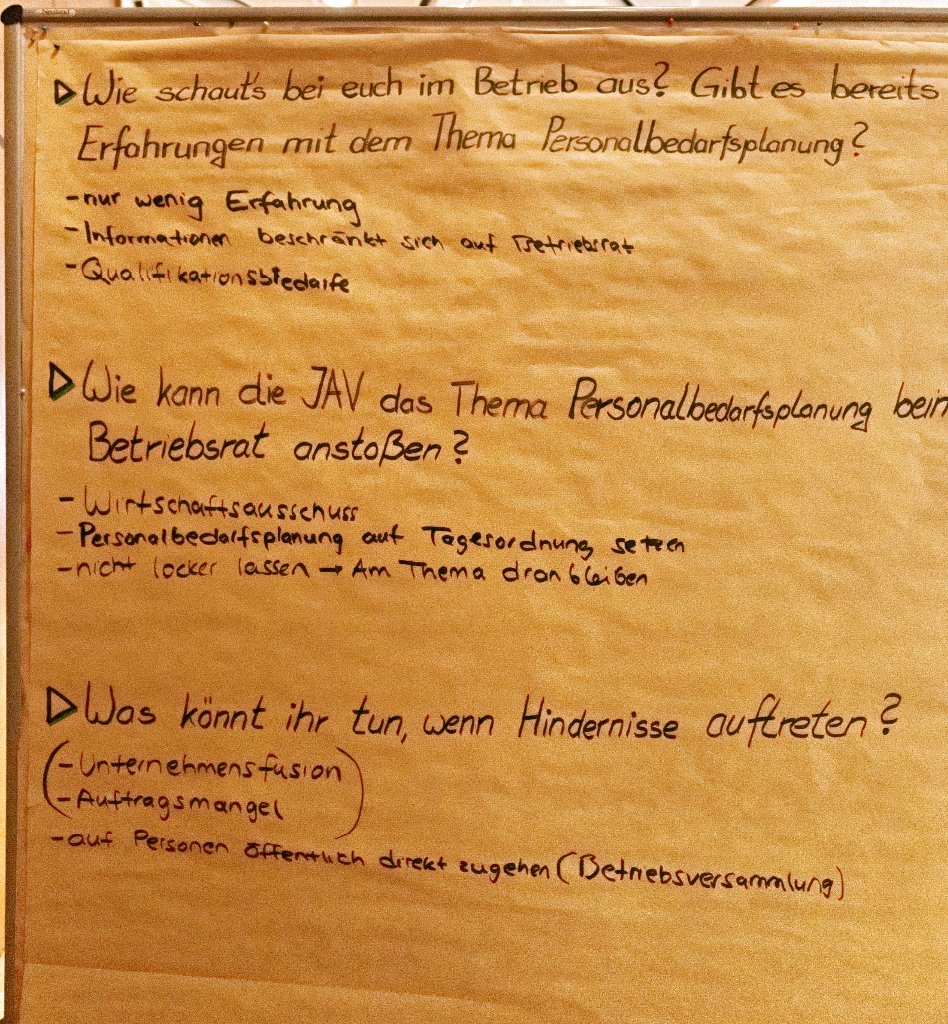 Wie schaut's bei euch im Betrieb aus? Gibt es bereits
Erfahrungen mit dem Thema Personalbedarfsplanung?
-nur wenig Erfahrung
-Informationen beschränkt sich auf Betriebsrat
-Qualifikationsbedarfe
Wie kann die JAV das Thema Personalbedarfsplanung beim
Betriebsrat anstoßen?
- Wirtschaftsausschuss
- Personalbedarfsplanung auf Tagesordnung setzen
- nicht locker lassen → Am Thema dranbleiben
Was könnt ihr tun, wenn Hindernisse auftreten?
(- Unternehmensfusion
- Auftragsmangel)
- auf Personen öffentlich direkt zugehen (Betriebsversammlung)